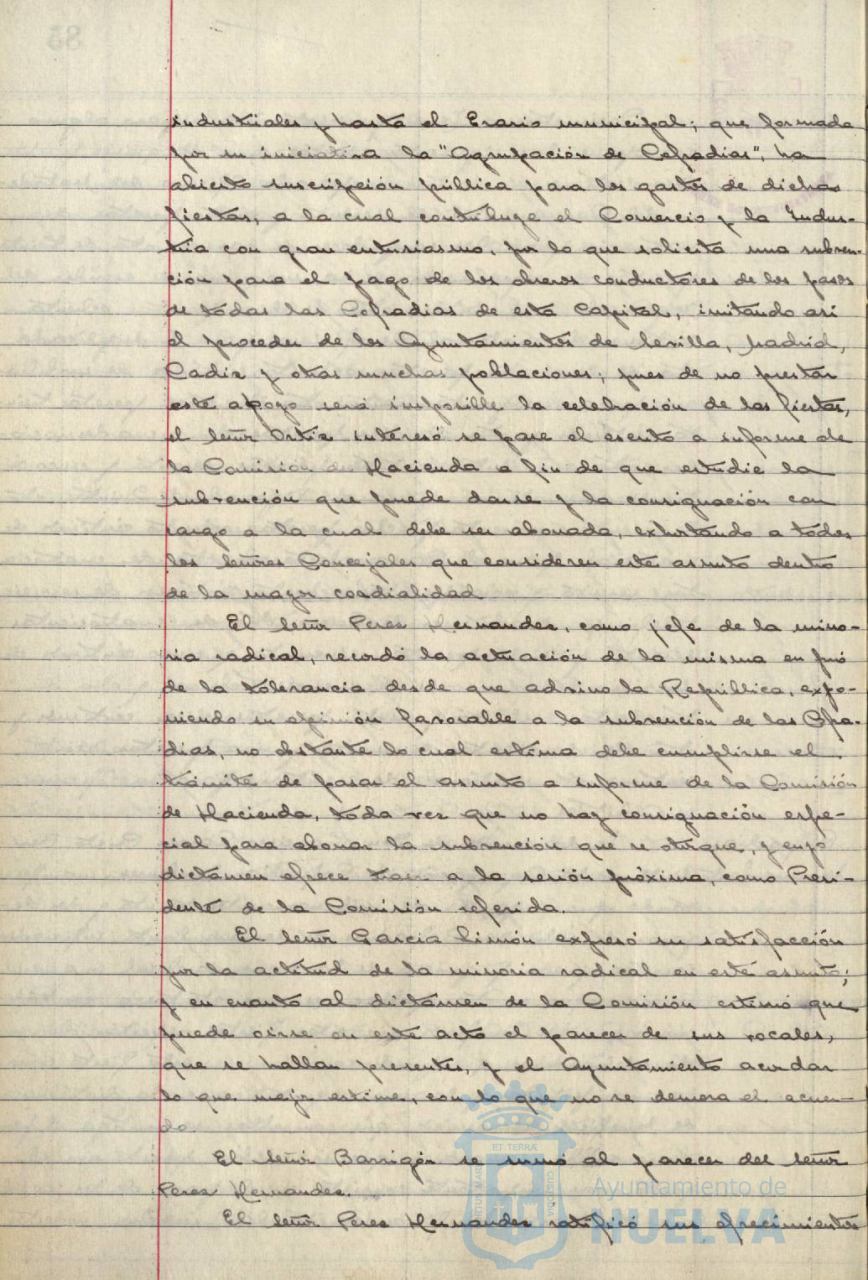 industriales y hasta el Erario municipal; que formada
por su iniciativa la "Agrupación de Cofradias", ha
abierto suscripción pública para los gastos de dichas
fiestas, a la cual contribuye el Comercio y la Indus-
tria con gran entusiasmo, por lo que solicita una subven-
ción para el pago de los obreros conductores de los pasos
de todas las Cofradias de esta Capital, imitando asi
el proceder de los Ayuntamientos de Sevilla, Madrid,
Cadiz y otras muchas poblaciones; pues de no prestar
este apoyo será imposible la celebración de las fiestas,
el señor Ortiz interesó se pase el escrito a informe de
la Comisión de Hacienda a fin de que estudie la
subvención que puede darse y la consignación con
cargo a la cual debe ser abonada, exhortando a todos
los señores Concejales que consideren este asunto dentro
de la mayor cordialidad
El señor Perez Hernandez, como jefe de la mino-
ria radical, recordó la actuación de la misma en pró
de la tolerancia desde que advino la República, expo-
niendo su opinión favorable a la subvención de las Cofra-
dias, no obstante lo cual estima debe cumplirse el
trámite de pasar el asunto a informe de la Comisión
de Hacienda, toda vez que no hay consignación espe-
cial para abonar la subvención que se otorgue, y cuyo
dictámen ofrece traer a la sesión próxima, como Presi-
dente de la Comisión referida.
El señor Garcia Limón expresó su satisfacción
por la actitud de la minoria radical en este asunto;
y en cuanto al dictámen de la Comisión estimó que
puede oirse en este acto el parecer de sus vocales,
que se hallan presentes, y el Ayuntamiento acordar
lo que mejor estime, con lo que no se demora el acuer-
do.
El señor Barrigón se sumó al parecer del señor
Perez Hernandez.
El señor Perez Hernandez ratificó sus ofrecimientos
Ayuntamiento de
HUELVA